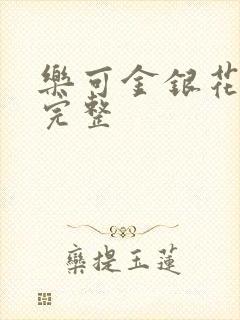 樂可金銀花
完整
欒提玉蓮